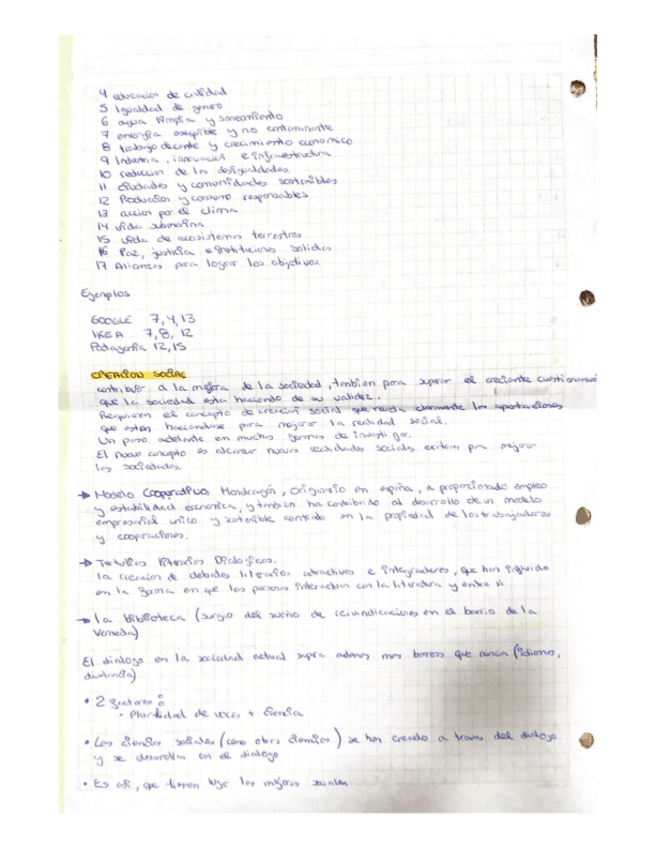 4 educacion de calidad
5 Igualdad de genero
6 agua limpia y saneamiento
7 energia asequible y no contaminante
8 trabajo decente y crecimiento economico
9 Industria, innovacion e infraestructura
10 reduccion de las desigualdades
11 ciudades y comunidades sostenibles
12 Produccion y consumo responsables
13 accion por el clima
14 vida submarina
15 vida de ecosistemas terrestres
16 Paz, justicia e instituciones solidas
17 Alianzas para lograr los objetivos
Ejemplos
GOOGLE 7,4,13
IKEA 7,8,12
Patagonia 12,15
CREACION SOCIAL
contribuir a la mejora de la sociedad, tambien para superar el creciente
que la sociedad esta haciendo de su validez.
Requieren el concepto de creacion social que revela claramente las aportaciones
que estan haciendose para mejorar la realidad social.
Un paso adelante en muchas formas de investigar.
El nuevo concepto es alcanzar nuevas realidades sociales existen pra mejorar
las sociedades.
→ Modelo Cooperativo Mondragón, originario en españa, a proporcionado empleo
y estabilidad economica, y tambien ha contribuido al desarrollo de un modelo
empresarial unico y sostenible centrado en la propiedad de los trabajadores
y cooperaciones.
→ Tertulias literarias Dialogicas.
la creacion de debates literarios atractivos e integradores, que han influido
en la forma en que las personas interactuan con la literatura y entre si
→ la biblioteca (surgio del sueño de reivindicaciones en el barrio de la
Verneda)
El dialogo en la sociedad actual supra mas barreras que nunca (idiomas,
distancia)
• 2 factores:
• Pluralidad de voces + ciencia
• Las ciencias sociales (como otras ciencias) se han creado a traves del dialogo
y se desarrollan con el dialogo
• Es asi, que tienen lugar las mejoras sociales